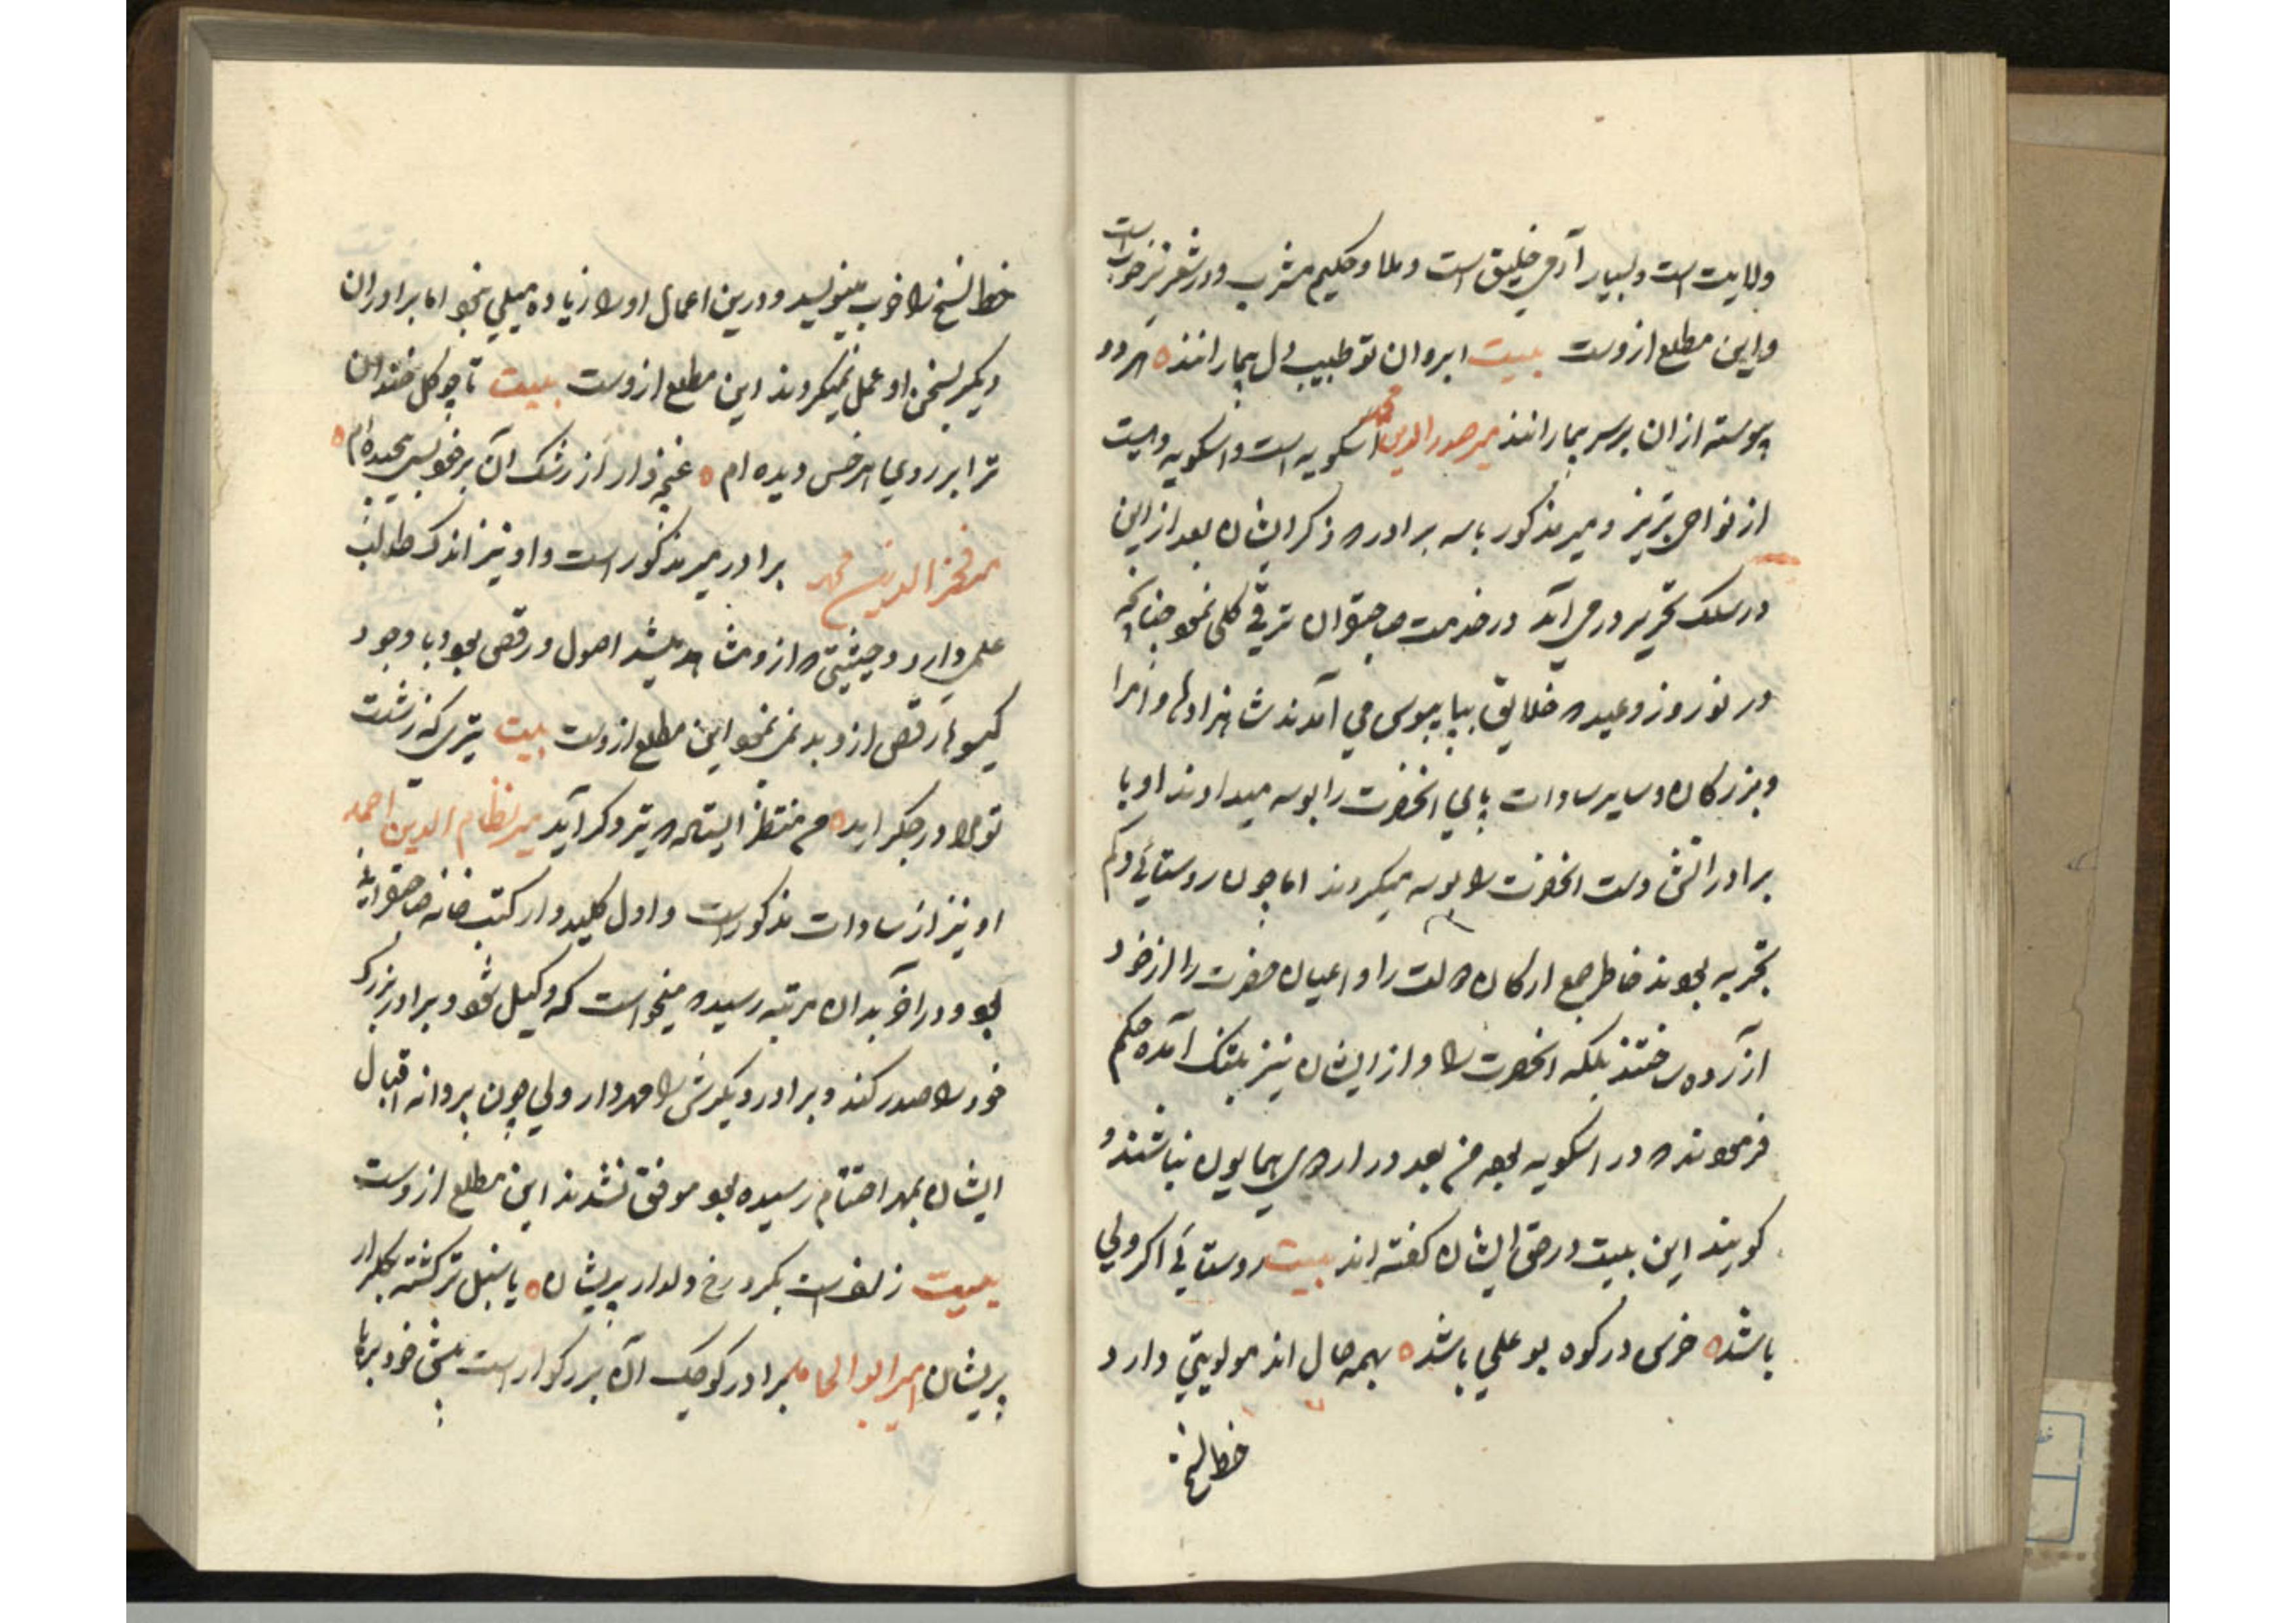 ولایت است و بسیار آدمی خلیق است و ملا و حکیم مشرب و در شعر نیز خوب است
و این مطلع ازوست بیت ابروان تو طبیب دل بیمارانند ه هر دو
پیوسته ازان بر سر بیمارانند میر صدر الدین محمد اسکویه است و اسکویه دهیست
از نواحی تبریز و میر مذکور با سه برادر که ذکر ایشان بعد از این
در سلک تحریر در می آید در خدمت صاحبقران ترقی کلی نمود چنانچه
در نوروز و عید که خلایق بپایبوسی می آمدند شاهزادها و امرا
و بزرگان و سایر سادات پای انحضرت را بوسه میدادند او با
برادرانش دست انحضرت را بوسه میکردند اما چون روستائی و کم
تجربه بودند خاطر جمع ارکان دولت را و اعیان حضرت را از خود
آزرده ساختند بلکه انحضرت را و از ایشان نیز بتنک آمده حکم
فرمودند که در اسکویه بوده من بعد در اردوی همایون نباشند و
کویند این بیت در حق ایشان کفته اند بیت روستائی اکر ولی
باشد ه خرس در کوه بو علی باشد ه بهمه حال اند مولویتی دارد
خط نسخ
خط نسخ را خوب مینویسد و درین اعمال او را زیاده میلی نبود اما برادران
دیکر بسخن او عمل نمیکردند این مطلع ازوست بیت تا چو کل خندان
ترا بر روی هر خس دیده ام ه غنچه وار از رشک آن بر خود بسی پیچیده ام ه
میر فخر الدین محمد برادر میر مذکور است و او نیز اندک طالب
علمی دارد و حیثیتی که ازو مشاهد میشد اصول و رقص بود با وجود
کیسوها رقص ازو بد نمی نمود این مطلع ازوست بیت تیری که ز شست
تو مرا در جکر اید ه من منتظر ایستاده که تیر دکر آید میر نظام الدین احمد
او نیز از سادات مذکور است و اول کلیددار کتب خانه صاحبقرانی
بود و در آخر بدان مرتبه رسید که میخواست که وکیل شود و برادر بزرک
خود را صدر کند و برادر دیکرش را مهردار ولی چون پروانه اقبال
ایشان بمهر اختتام رسیده بود موفق نشدند این مطلع ازوست
بیت زلفست بکرد رخ دلدار پریشان ه یا سنبل تر کشته بکلزار
پریشان امیر ابو المحامد برادر کوچک آن بزرکوار است بمشق خود برها